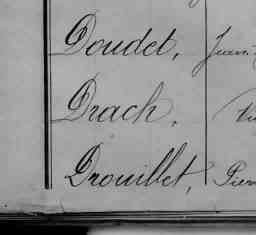 Doudet, Jean
Drach,
Drouillet, Pier